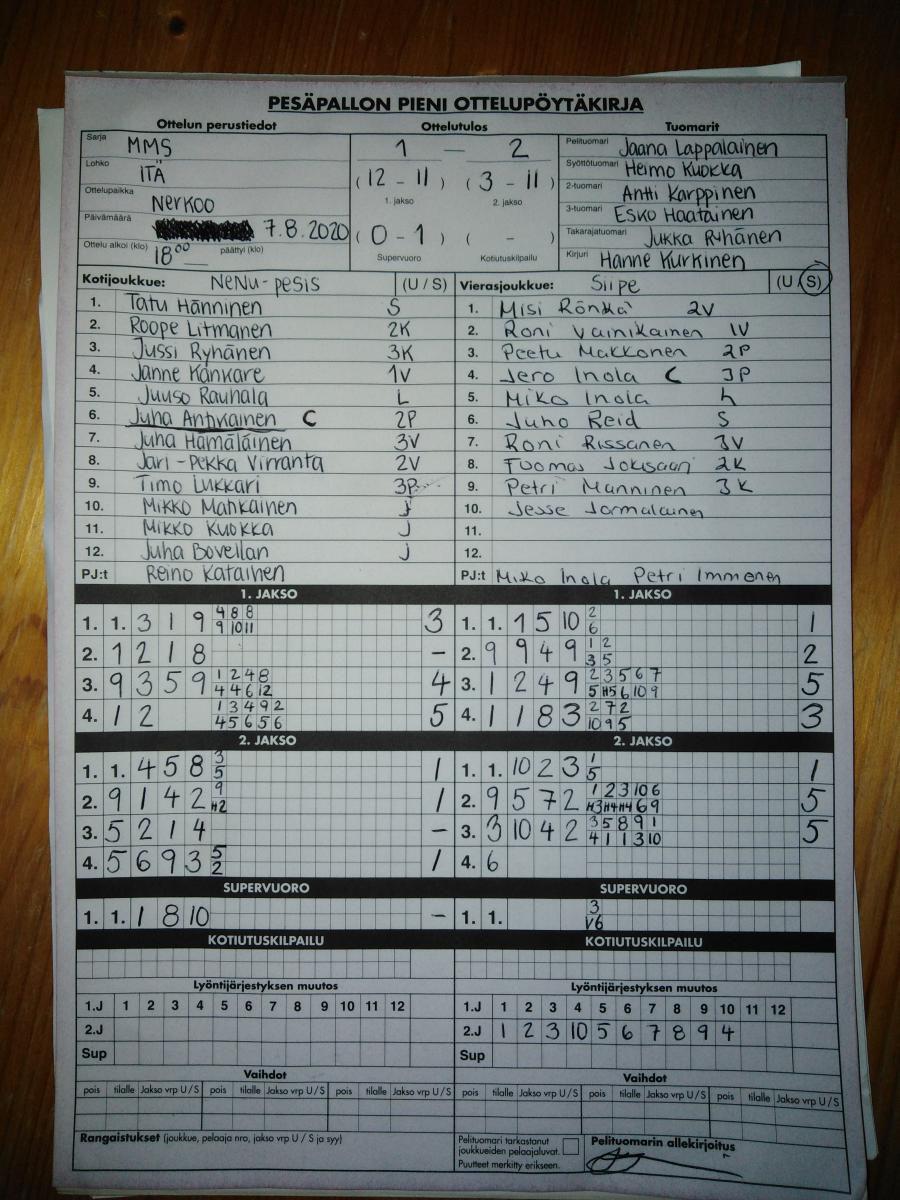 PESÄPALLON PIENI OTTELUPÖYTÄKIRJA
Ottelun perustiedot Ottelutulos Tuomarit
Sarja MMS
Lohko ITÄ
Ottelupaikka Nerkoo
Päivämäärä 7.8.2020
Ottelu alkoi (klo) 18⁰⁰ päättyi (klo)
1 — 2
(12 - 11) (3 - 11)
1. jakso 2. jakso
(0 - 1) ( - )
Supervuoro Kotiutuskilpailu
Pelituomari Jaana Lappalainen
Syöttötuomari Heimo Kuokka
2-tuomari Antti Karppinen
3-tuomari Esko Haatainen
Takarajatuomari Jukka Ryhänen
Kirjuri Hanne Kurkinen
Kotijoukkue: NeNu-pesis (U / S)
1. Tatu Hänninen S
2. Roope Litmanen 2K
3. Jussi Ryhänen 3K
4. Janne Kankare 1V
5. Juuso Rauhala L
6. Juha Antikainen C 2P
7. Juha Hämäläinen 3V
8. Jari-Pekka Virranta 2V
9. Timo Lukkari 3P
10. Mikko Mahkainen j
11. Mikko Kuokka J
12. Juha Bovellan j
PJ:t Reino Katainen
Vierasjoukkue: Siipe (U / S)
1. Misi Rönkä 2V
2. Roni Vainikainen 1V
3. Peetu Makkonen 2P
4. Jero Inola C 3P
5. Miko Inola L
6. Juho Reid S
7. Roni Rissanen 3V
8. Tuomas Jokisaari 2K
9. Petri Manninen 3K
10. Jesse Jormalainen
11.
12.
PJ:t Miko Inola Petri Immonen
1. JAKSO 1. JAKSO
1. 1. 3 1 9 4 8 8 3
9 10 11
2. 1 2 1 8 –
3. 9 3 5 9 1 2 4 8 4
4 4 6 12
4. 1 2 1 3 4 9 2 5
4 5 6 5 6
1. 1. 1 5 10 2 1
6
2. 9 9 4 9 1 2 2
3 5
3. 1 2 4 9 2 3 5 6 7 5
5 H5 6 10 9
4. 1 1 8 3 2 7 2 3
10 9 5
2. JAKSO 2. JAKSO
1. 1. 4 5 8 3 1
5
2. 9 1 4 2 9 1
H2
3. 5 2 1 4 –
4. 5 6 9 3 5 1
2
1. 1. 10 2 3 1 1
5
2. 9 5 7 2 1 2 3 10 6 5
H3 H4 H4 6 9
3. 3 10 4 2 3 5 8 9 1 5
4 1 1 3 10
4. 6
SUPERVUORO SUPERVUORO
1. 1. 1 8 10 –
1. 1. 3
V6
KOTIUTUSKILPAILU KOTIUTUSKILPAILU
Lyöntijärjestyksen muutos Lyöntijärjestyksen muutos
1.J 1 2 3 4 5 6 7 8 9 10 11 12 1.J 1 2 3 4 5 6 7 8 9 10 11 12
2.J 2.J 1 2 3 10 5 6 7 8 9 4
Sup Sup
Vaihdot Vaihdot
pois tilalle Jakso vrp U / S pois tilalle Jakso vrp U / S pois tilalle Jakso vrp U / S pois tilalle Jakso vrp U / S pois tilalle Jakso vrp U / S pois tilalle Jakso vrp U / S
Rangaistukset (joukkue, pelaaja nro, jakso vrp U / S ja syy)
Pelituomari tarkastanut
joukkueiden pelaajaluvat.
Puutteet merkitty erikseen.
Pelituomarin allekirjoitus